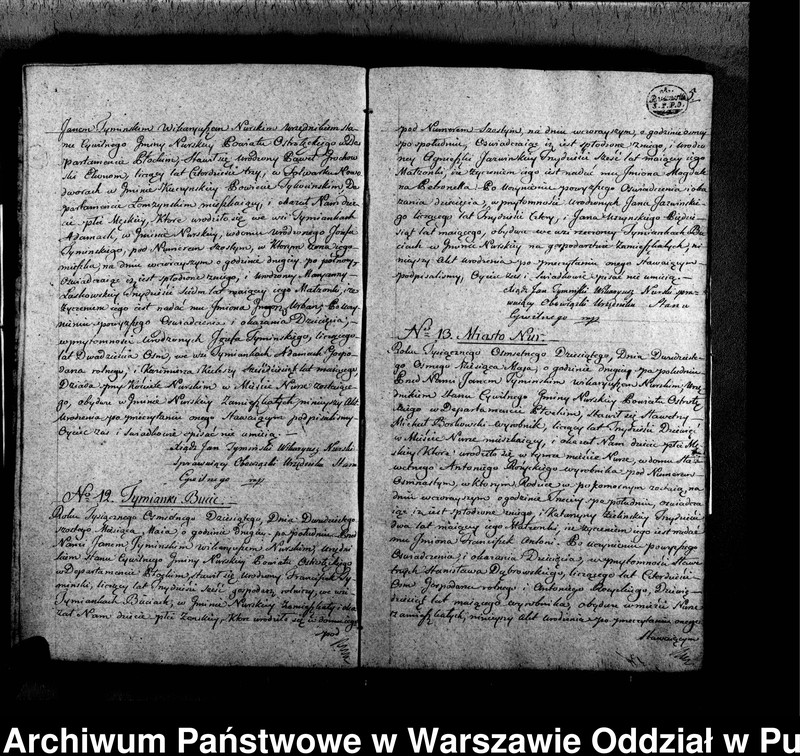 Janem Tyminskim Wikaryuszem Nurskim Urzędnikiem Sta-
nu Cywilnego Gminy Nurskiey Powiatu Ostrołęckiego w De-
partamencie Płockim, Stawił się Urodzony Paweł
Ekonom, liczący lat Czterdzieści trzy, w Folwarku Nowo
dworach w Gminie Powiecie De-
partamencie Łomżyńskim mieszkaiący, i okazał Nam dzie-
cie płci Męskiey, Które urodziło się we wsi Tymiankach
Adamach, w Gminie Nurskiey, w domu Urodzonego Jozefa
Tyminskiego, pod Numerem Szostym, w Ktorym żona iego
mieszka, na dniu wczorayszym o godzinie drugiey po połnocy,
oświadczaiąc iż iest spłodzone z niego, i Urodzoney Maryanny
Zaskowskiey Trydzieści Siedm lat maiącey iego Małżonki, i że
życzeniem iego iest nadać mu Jmiona Urban, Po uczy-
nieniu powyższego Oświadczenia i okazania Dziecięcia, –
w przytomności Urodzonych Jozefa Tyminskiego, liczącego
lat Dwadzieścia Osm, we wsi Tymiankach Adamach Gospo-
darza rolnego, i Kazimierza lat maiącego
Dziada przy Kościele Nurskim w Mieście Nurze zostaiące-
go, obydwu w Gminie Nurskiey Zamieszkałych, ninieyszy Akt
Urodzenia po przeczytaniu onego Stawaiącym podpisaliśmy
Oyciec zaś i Swiadkowie pisać nie umieią –
Xiądz Jan Tyminski Wikaryusz Nurski
Sprawuiący Obowiązki Urzędnika Stanu
Cywilnego mpp
No 12. Tymianki Bucie. –
Roku Tysiącznego Osmsetnego Dziesiątego, Dnia Dwudziestego
szostego Miesiąca Maia, o godzinie drugiey po południu Przed
Nami Janem Tyminskim Wikaryuszem Nurskim, Urzędni-
kiem Stanu Cywilnego Gminy Nurskiey Powiatu Ostrołęckiego
w Departamencie Płockim, stawił się Urodzony Franciszek Ty-
minski, liczący lat Trzydzieści Sześć gospodarz rolniczy, we wsi
Tymiankach Buciach, w Gminie Nurskiey Zamieszkały, i oka-
zał Nam dziecie płci Zenskiey, Ktore urodziło się w domu iego
pod
5
pod Numerem Szostym, na dniu wczorayszym, o godzinie osmey
po południu, Oświadczaiąc iż iest spłodzone z niego, i Urodzo-
ney Agnieszki Jaźwinskiey Trzydzieści Sześć lat maiącey iego
Małżonki, i że życzeniem iego iest nadać mu Jmiona Magdale-
na Petronella. Po uczynieniu powyższego Oświadczenia i oka-
zania dziecięcia, w przytomności Urodzonych Jana Jaźwinskie-
go liczącego lat Trzydzieści Cztery, i Jana Pięćdzie-
siąt lat maiącego, obydwu we wsi rzeczoney Tymiankach Bu-
ciach w Gminie Nurskiey na gospodarstwie Zamieszkałych, ni-
nieyszy Akt Urodzenia po przeczytaniu onego Stawaiącym
podpisaliśmy, Oyciec zaś i Swiadkowie pisać nie umieią –
Xiądz Jan Tyminski Wikaryusz Nurski spra-
wuiący Obowiązki Urzędnika Stanu
Cywilnego mpp
No 13. Miasto Nur. –
Roku Tysiącznego Osmsetnego Dziesiątego, Dnia Dwudzieste-
go Osmego Miesiąca Maia, o godzinie drugiey po południu
Przed Nami Janem Tyminskim Wikaryuszem Nurskim, Urzę-
dnikiem Stanu Cywilnego Gminy Nurskiey Powiatu Ostrołę-
ckiego w Departamencie Płockim, Stawił się Sławetny
Michał Borkowski wyrobnik, liczący lat Trzydzieści Dziewięć
w Mieście Nurze mieszkaiący, i okazał Nam dziecie płci Mę-
skiey, Ktore urodziło się w tymże mieście Nurze, w domu Sła-
wetnego Antoniego Rożyckiego wyrobnika pod Numerem
Osmnastym, w ktorym Rodzice zostaią, na
dniu wczorayszym o godzinie trzeciey po południu, oświadcza-
iąc iż iest spłodzone z niego, i Katarzyny Zielinskiey Trzydzieści
dwa lat maiącey iego Małżonki, i że życzeniem iego iest nadać
mu Jmiona Franciszek Antoni. Po uczynieniu powyższego
Oświadczenia, i okazania Dziecięcia, w przytomności Sławe-
tnych Stanisława Dąbrowskiego, liczącego lat Czterdzieści
Osm Gospodarza rolnego i Antoniego Rożyckiego, Dziewię-
dziesiąt lat maiącego wyrobnika, obydwu w mieście Nurze
zamieszkałych, ninieyszy Akt Urodzenia po przeczytaniu onego
Stawaiącym
Archiwum Państwowe w Warszawie Oddział w Pu